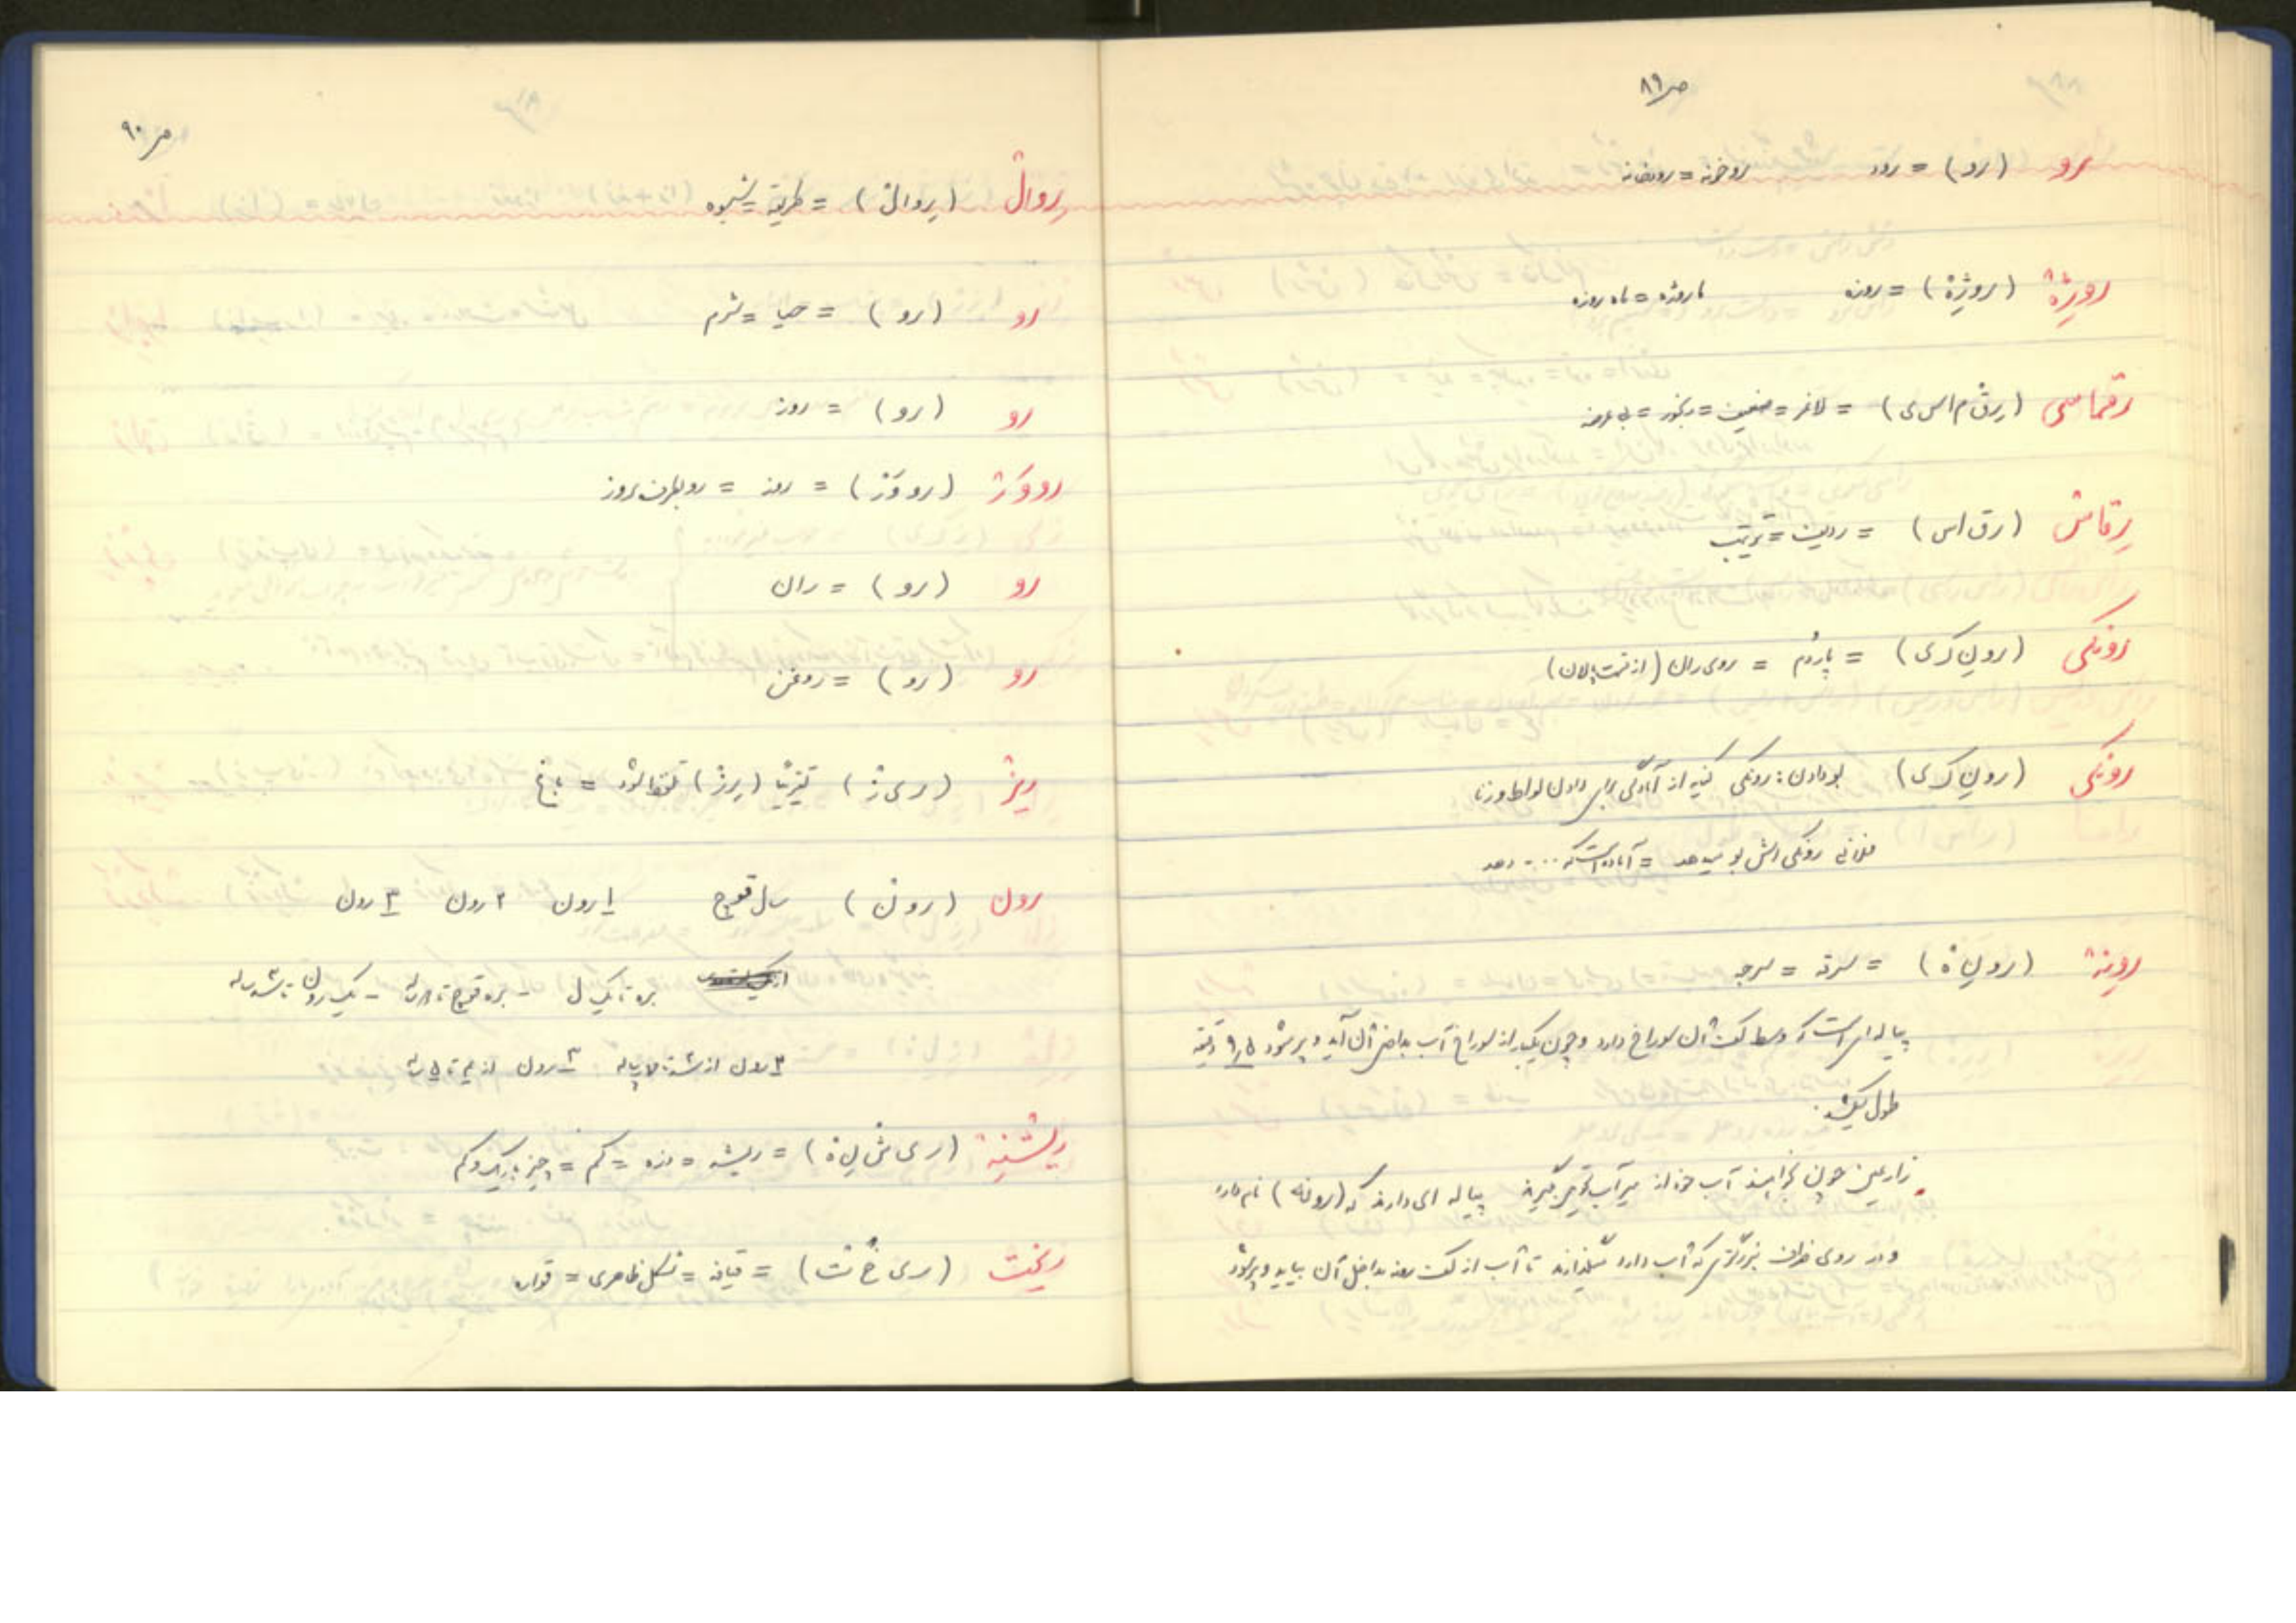 ص ۸۹
رو (رو) = رود روخونه = رودخانه
روژه (روژه) = روزه ماروژه = ماه روزه
رقماسی (رق م اس ی) = لاغر = ضعیف = رنجور = بی عرضه
رقاس (رق اس) = ردیف = ترتیب
رونکی (رون ک ی) = پاردم = روی ران (از قسمت پالان)
رونکی (رون ک ی) بو دادن: رونکی کنیه از آمادگی برای دادن لواط و زنا
فلانی رونکی اش بو میدهد = آماده است که ... دهد
رونه (رون ه) = سرقه = سرجه
پیاله ای است که وسط کف آن سوراخ دارد و چون یکبار از سوراخ آب بداخل آن آید و پر شود دقیقه
طول میکشد.
زارعین چون بخواهند آب خود از میرآب تحویل بگیرند پیاله ای دارند که (رونه) نام دارد
و در روی ظرف بزرگتری که آب دارد میگذارند تا آب از کف رونه بداخل آن بیاید و پر شود
ص ۹۰
روال (روال) = طریقه = شیوه
رو (رو) = حیا = شرم
رو (رو) = روز
رووَژ (رو وَژ) = روز = رو بطرف روز
رو (رو) = ران
رو (رو) = روغن
ریژ (ری ژ) تقریباً (رِژ) تلفظ شود =
رون (رون) سال قوچ ۱ رون ۲ رون ۳ رون
بره تا یک سال - بره قوچ - یک رون
۲ رون از ۳ رون از
ریشنه (ری ش ن ه) = ریشه = مزه = کم = چیز باریک و کم
ریخت (ری خ ت) = قیافه = شکل ظاهری = قواره